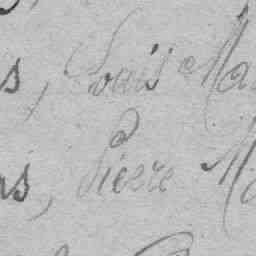 s, Louis Ma
ns, Pierre Ma